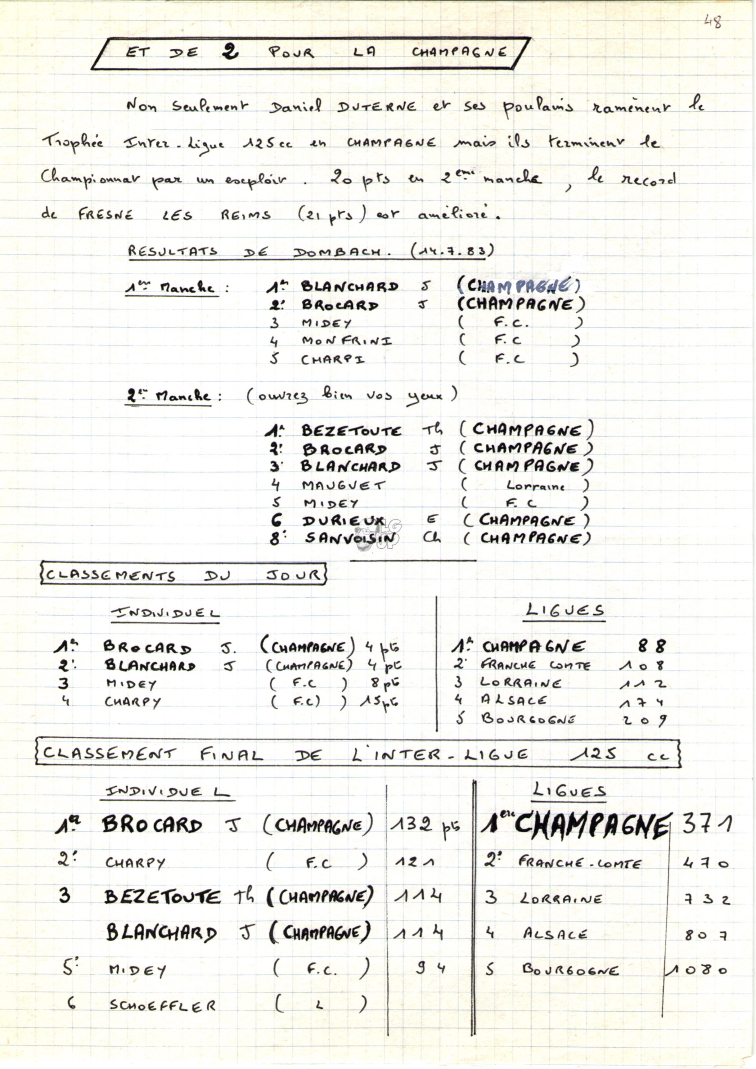 48
ET DE 2 POUR LA CHAMPAGNE
Non seulement Daniel DUTERNE et ses poulains ramènent le
Trophée Inter-Ligue 125cc en CHAMPAGNE mais ils terminent le
Championnat par un exploit. 20 pts en 2ème manche, le record
de FRESNE LES REIMS (21 pts) est amélioré.
RESULTATS DE DOMBACH. (14.7.83)
1ère Manche : 1er BLANCHARD J (CHAMPAGNE)
2e BROCARD J (CHAMPAGNE)
3 MIDEY ( F.C. )
4 MONFRINI ( F.C )
5 CHARPI ( F.C )
2e Manche : (ouvrez bien vos yeux)
1er BEZETOUTE Th (CHAMPAGNE)
2e BROCARD J (CHAMPAGNE)
3e BLANCHARD J (CHAMPAGNE)
4 MAUGUET ( Lorraine )
5 MIDEY ( F.C )
6 DURIEUX E (CHAMPAGNE)
8e SANVOISIN Ch (CHAMPAGNE)
CLASSEMENTS DU JOUR
INDIVIDUEL
1er BROCARD J. (CHAMPAGNE) 4 pts
2e BLANCHARD J (CHAMPAGNE) 4 pts
3 MIDEY ( F.C ) 8 pts
4 CHARPY ( F.C ) 15 pts
LIGUES
1er CHAMPAGNE 88
2e FRANCHE COMTE 108
3 LORRAINE 112
4 ALSACE 174
5 BOURGOGNE 209
CLASSEMENT FINAL DE L'INTER-LIGUE 125 cc
INDIVIDUEL
1er BROCARD J (CHAMPAGNE) 132 pts
2e CHARPY ( F.C ) 121
3 BEZETOUTE Th (CHAMPAGNE) 114
BLANCHARD J (CHAMPAGNE) 114
5e MIDEY ( F.C. ) 94
6 SCHOEFFLER ( L )
LIGUES
1ere CHAMPAGNE 371
2e FRANCHE-COMTE 470
3 LORRAINE 732
4 ALSACE 807
5 BOURGOGNE 1080